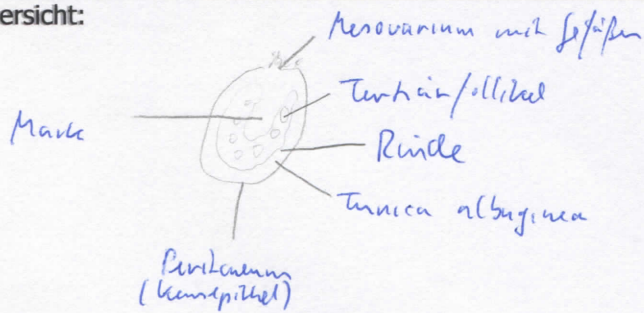 ersicht:
Mesovarium mit Gefäßen
Tertiärfollikel
Mark
Rinde
Tunica albuginea
Peritoneum
(Keimepithel)